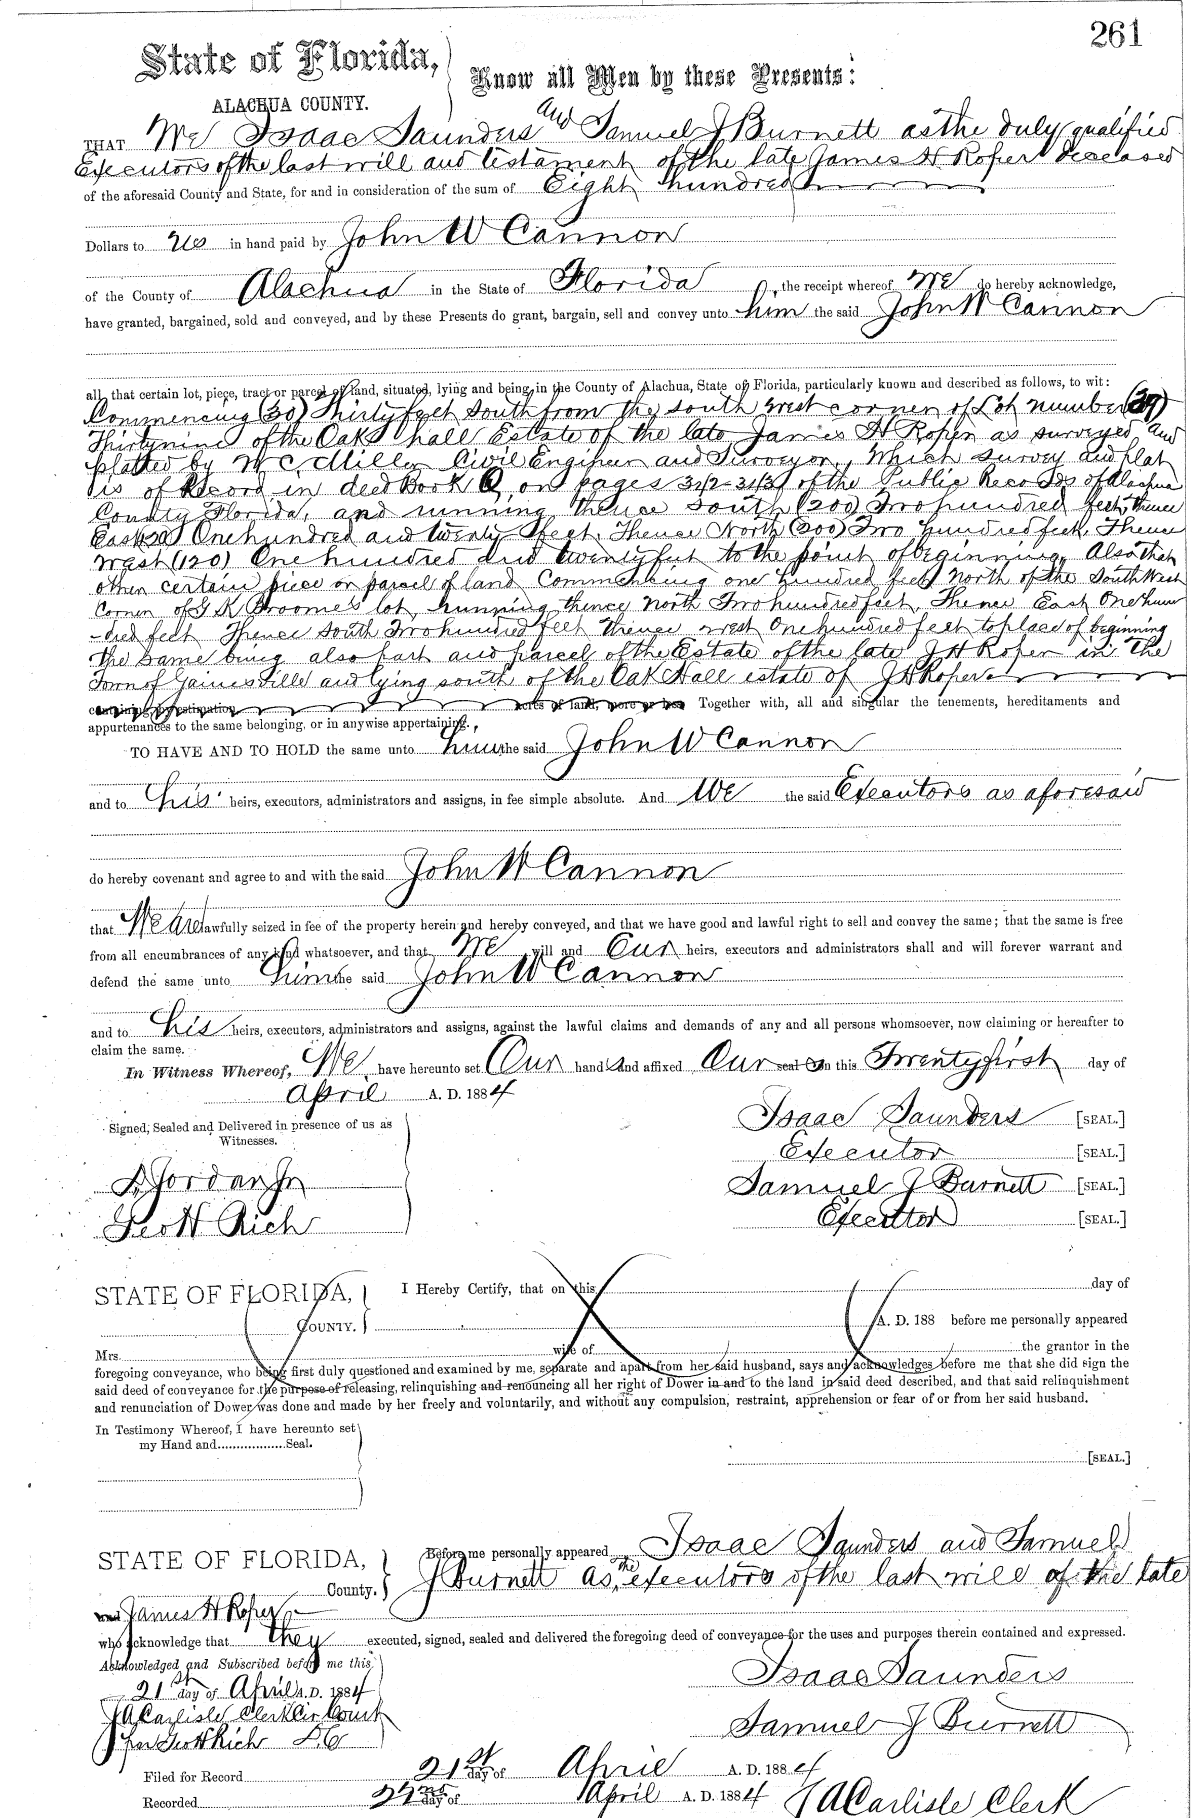 261
State of Florida, Know all Men by these Presents:
ALACHUA COUNTY.
THAT We Isaac Saunders and Samuel J Burnett as the duly qualified
Executors of the last will and testament of the late James H Roper deceased
of the aforesaid County and State, for and in consideration of the sum of Eight hundred
Dollars to us in hand paid by John W Cannon
of the County of Alachua in the State of Florida, the receipt whereof We do hereby acknowledge,
have granted, bargained, sold and conveyed, and by these Presents do grant, bargain, sell and convey unto him the said John W Cannon
all that certain lot, piece, tract or parcel of land, situated, lying and being in the County of Alachua, State of Florida, particularly known and described as follows, to wit:
Commencing (30) Thirty feet South from the south west corner of Lot number (39)
Thirtynine of the Oak hall Estate of the late James H Roper as surveyed and
platted by W. C. Miller Civil Engineer and Surveyor, Which survey and plat
is of Record in deed Book Q, on pages 342-343 of the Public Records of Alachua
County Florida, and running thence South (200) Two hundred feet, thence
East One hundred and twenty feet, Thence North (200) Two hundred feet, Thence
West (120) One hundred and twenty feet to the point of beginning, Also that
other certain piece or parcel of land Commencing one hundred feet North of the South West
Corner of G K Broome's lot, running thence North Two hundred feet, Thence East One hun
-dred feet Thence South Two hundred feet thence west One hundred feet to place of beginning
the same being also part and parcel of the Estate of the late J H Roper in the
Town of Gainesville and lying south of the Oak Hall estate of J H Roper
acres of land, more or less Together with, all and singular the tenements, hereditaments and
appurtenances to the same belonging, or in anywise appertaining.
TO HAVE AND TO HOLD the same unto him the said John W Cannon
and to his heirs, executors, administrators and assigns, in fee simple absolute. And We the said Executors as aforesaid
do hereby covenant and agree to and with the said John W Cannon
that We are lawfully seized in fee of the property herein and hereby conveyed, and that we have good and lawful right to sell and convey the same; that the same is free
from all encumbrances of any kind whatsoever, and that We will and Our heirs, executors and administrators shall and will forever warrant and
defend the same unto him the said John W Cannon
and to his heirs, executors, administrators and assigns, against the lawful claims and demands of any and all persons whomsoever, now claiming or hereafter to
claim the same.
In Witness Whereof, We have hereunto set Our hands and affixed Our seals on this Twentyfirst day of
April A. D. 1884
Signed, Sealed and Delivered in presence of us as
Witnesses.
Isaac Saunders [SEAL.]
Executor [SEAL.]
Jordan Jr Samuel J Burnett [SEAL.]
Geo H Rich Executor [SEAL.]
STATE OF FLORIDA, I Hereby Certify, that on this day of
COUNTY. A. D. 188 before me personally appeared
Mrs. wife of the grantor in the
foregoing conveyance, who being first duly questioned and examined by me, separate and apart from her said husband, says and acknowledges before me that she did sign the
said deed of conveyance for the purpose of releasing, relinquishing and renouncing all her right of Dower in and to the land in said deed described, and that said relinquishment
and renunciation of Dower was done and made by her freely and voluntarily, and without any compulsion, restraint, apprehension or fear of or from her said husband.
In Testimony Whereof, I have hereunto set
my Hand and..................Seal.
[SEAL.]
STATE OF FLORIDA, Before me personally appeared Isaac Saunders and Samuel
County. J Burnett as the executors of the last will of the late
James H Roper
who acknowledge that they executed, signed, sealed and delivered the foregoing deed of conveyance for the uses and purposes therein contained and expressed.
Acknowledged and Subscribed before me this
21st day of April A.D. 1884
Isaac Saunders
J A Carlisle Clerk Cir Court
Samuel J Burnett
per Geo H Rich D.C
Filed for Record 21st day of April A. D. 1884
Recorded 22nd day of April A. D. 1884 J A Carlisle Clerk